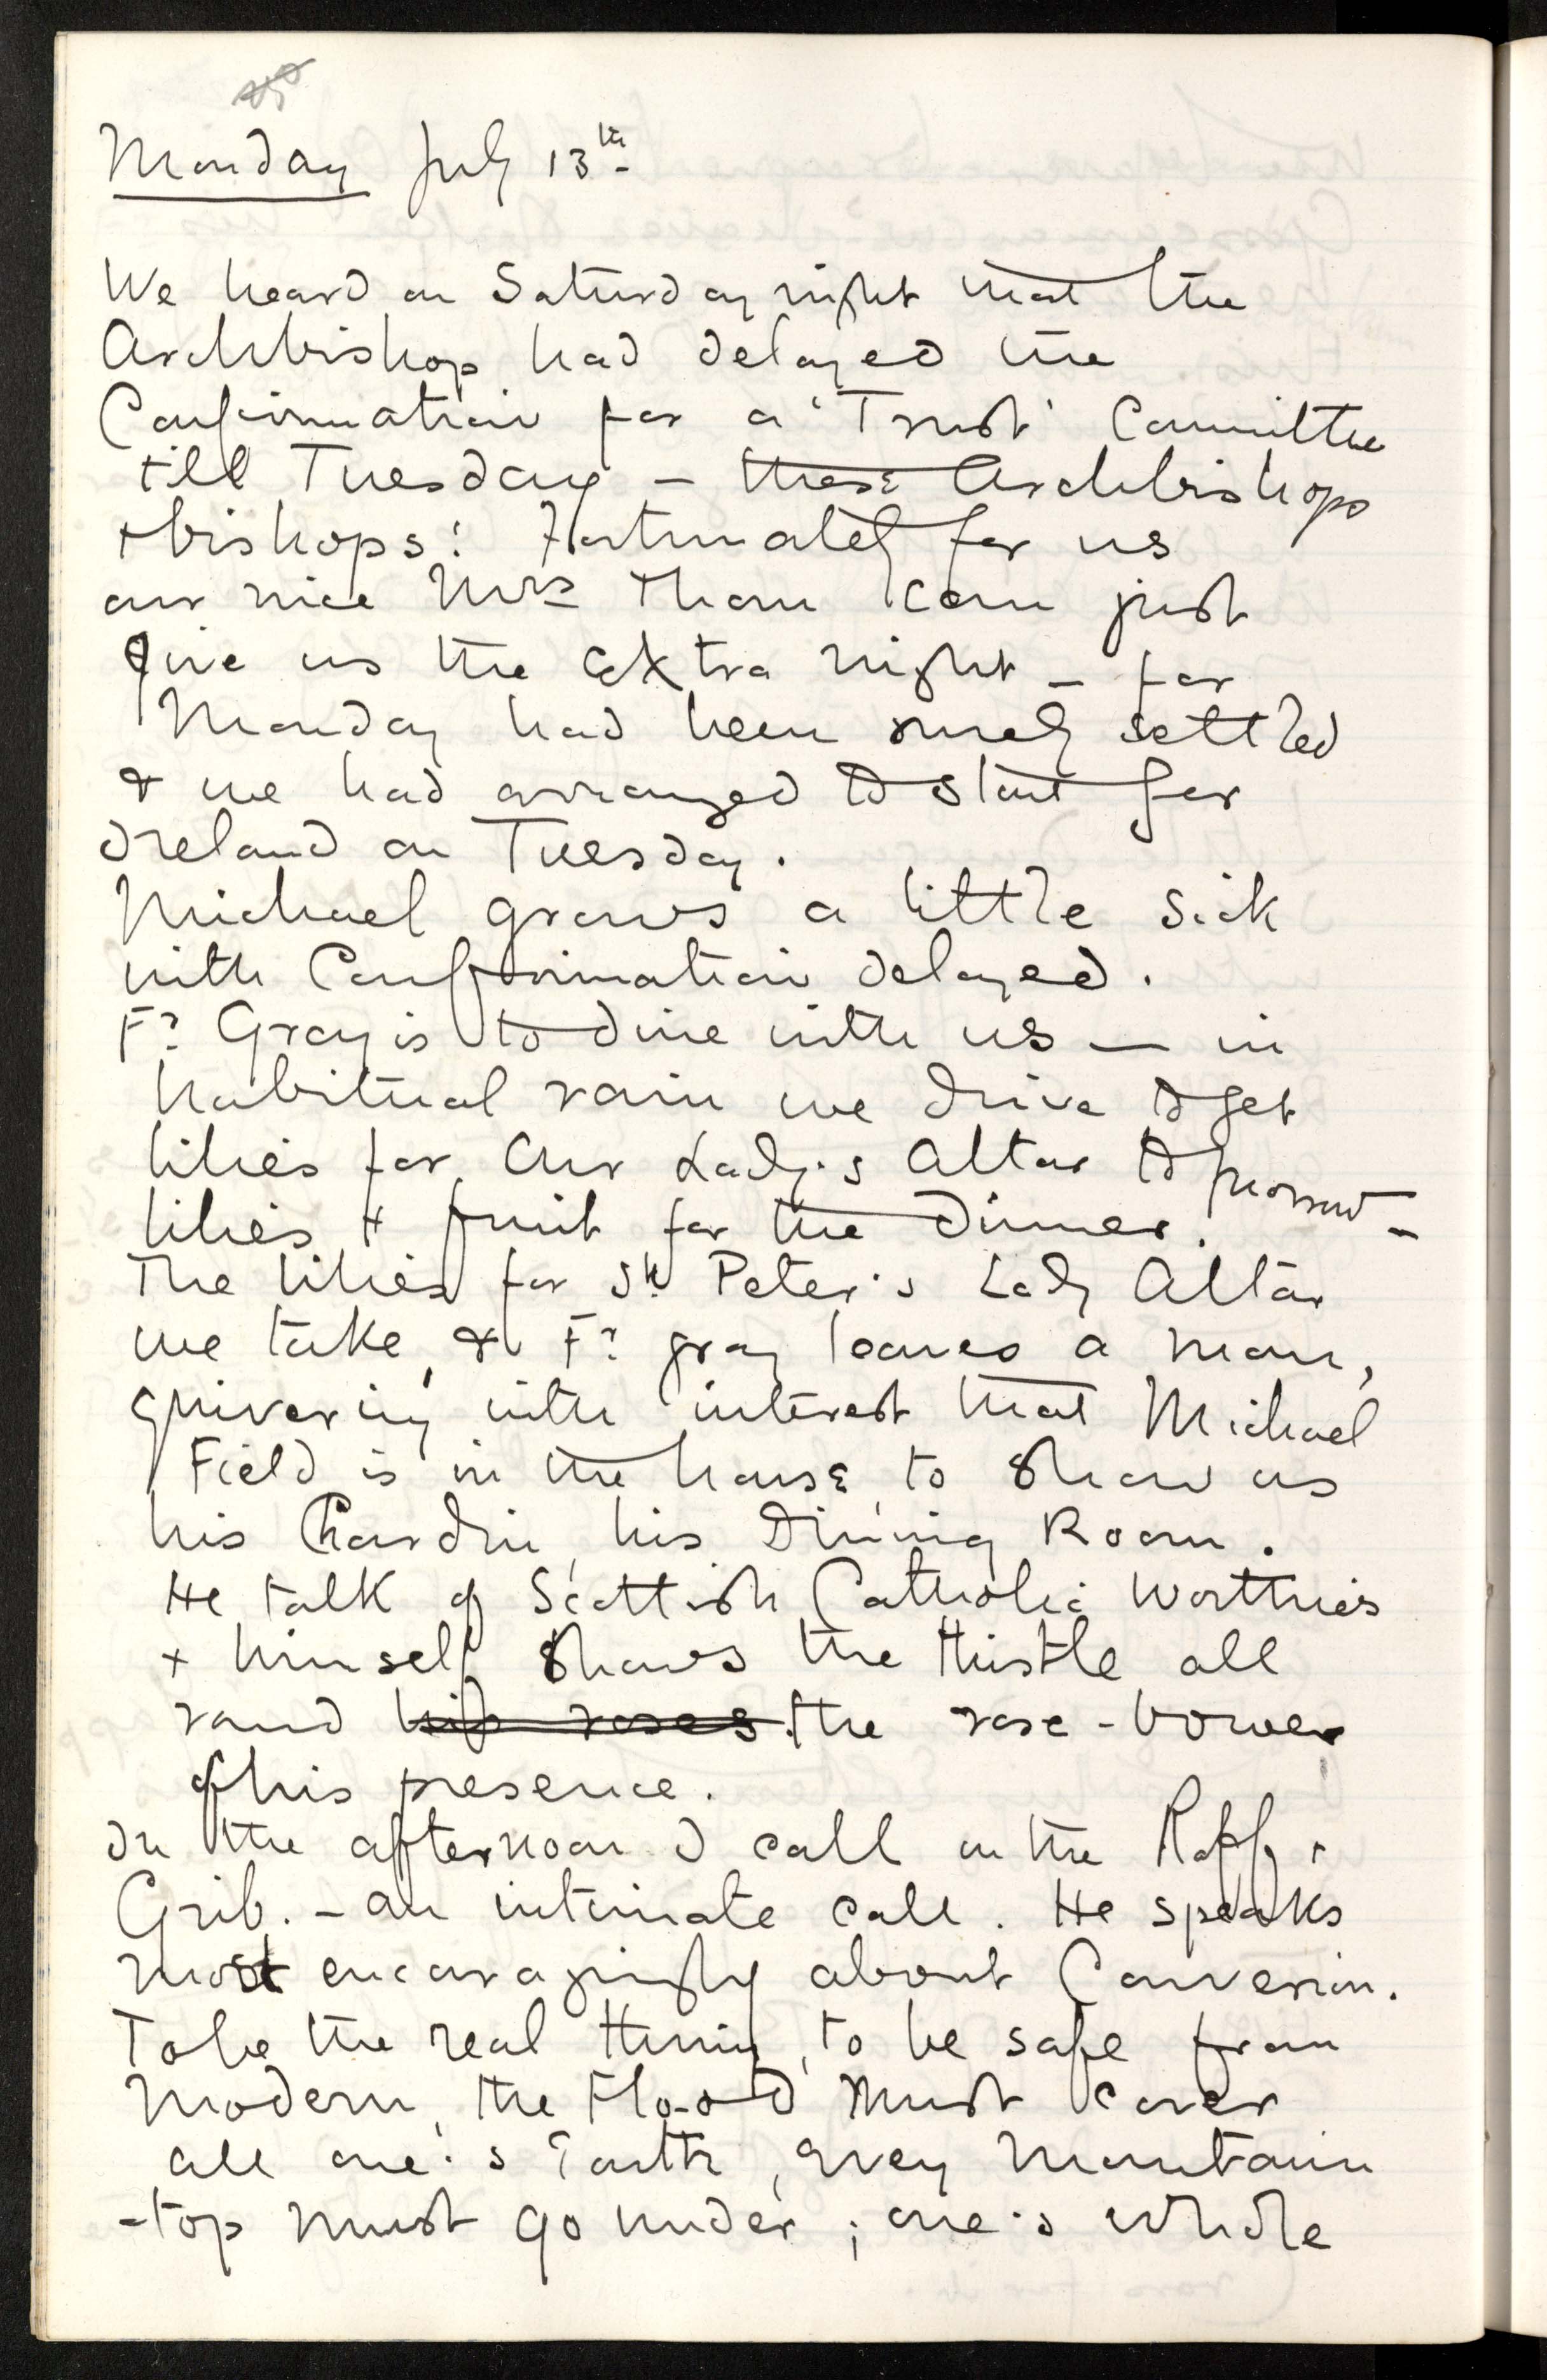 Monday July 13th
We heard on Saturday night that the
Archbishop had delayed the
Confirmation for a 'Trust' Committee
till Tuesday – these Archbishops
+ bishops! Fortunately for us
our nice Mrs Thom can just
give us the extra night – for
Monday had been surely settled
& we had arranged to start for
Ireland on Tuesday.
Michael grows a little sick
with Confirmation delayed.
Fr Gray is to dine with us — in
habitual rain we drive to get
lilies for Our Lady's Altar to morrow –
lilies + fruit for the dinner.
The lilies for St Peter's Lady Altar
we take, & Fr gray leaves a man,
quivering with interest that Michael
Field is in the house, to show us
his Chardin, his Dining Room.
He talk of Scottish Catholic Worthies
+ himself shows the thistle all
round his roses the rose-bower
of his presence.
In the afternoon I call on the Raff +
Grib. – an intimate call. He speaks
most encouragingly about Conversion.
To be the real thing, to be safe from
Modern, the Flood must cover
all one's Earth, every Mountain
-top must go under; one's whole